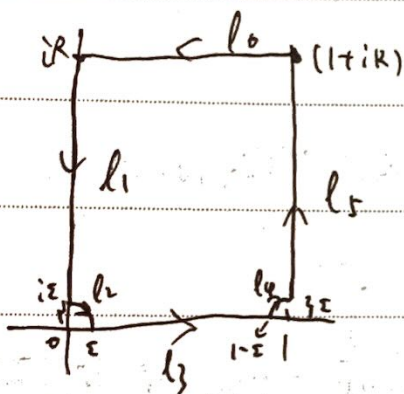 iR l₀ (1+iR)
l₁ l₅
iε l₂ l₄ ξε
0 ε 1-ε 1
l₃